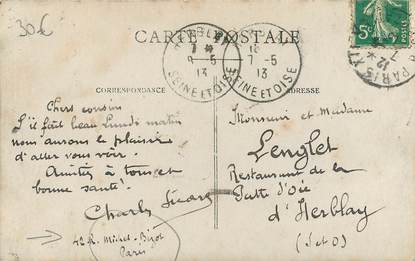 30€
CARTE POSTALE
HERBLAY
7-5
13
SEINE ET OISE
7-5
13
SEINE ET OISE
5c
PARIS XII
CORRESPONDANCE
ADRESSE
Chers cousins
S'il fait beau Lundi matin
nous aurons le plaisir
d'aller vous voir.
Amitiés à tous et
bonne santé.
Charles
42 R. Michel-Bizot
Paris
Monsieur et Madame
Lenglet
Restaurant de la
Patte d'Oie
d'Herblay
(S et O)